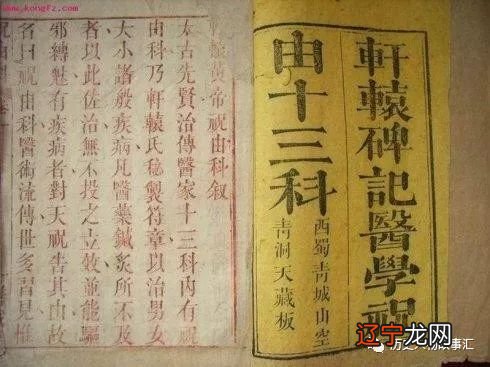 www.kongfz.com
軒轅碑記醫學祝
由十三科
西蜀青城山空
青洞天藏板
軒轅黃帝祝由科敘
太古先賢治傳醫家十三科內有祝
由科乃軒轅氏秘製符章以治男女
大小諸般疾病凡醫藥鍼灸所不及
者以此佐治無不投之立效並能驅
邪縛魅有疾病者對天祝告其由故
名曰祝由科醫術流傳世多習見惟
辽宁龙网
故事汇